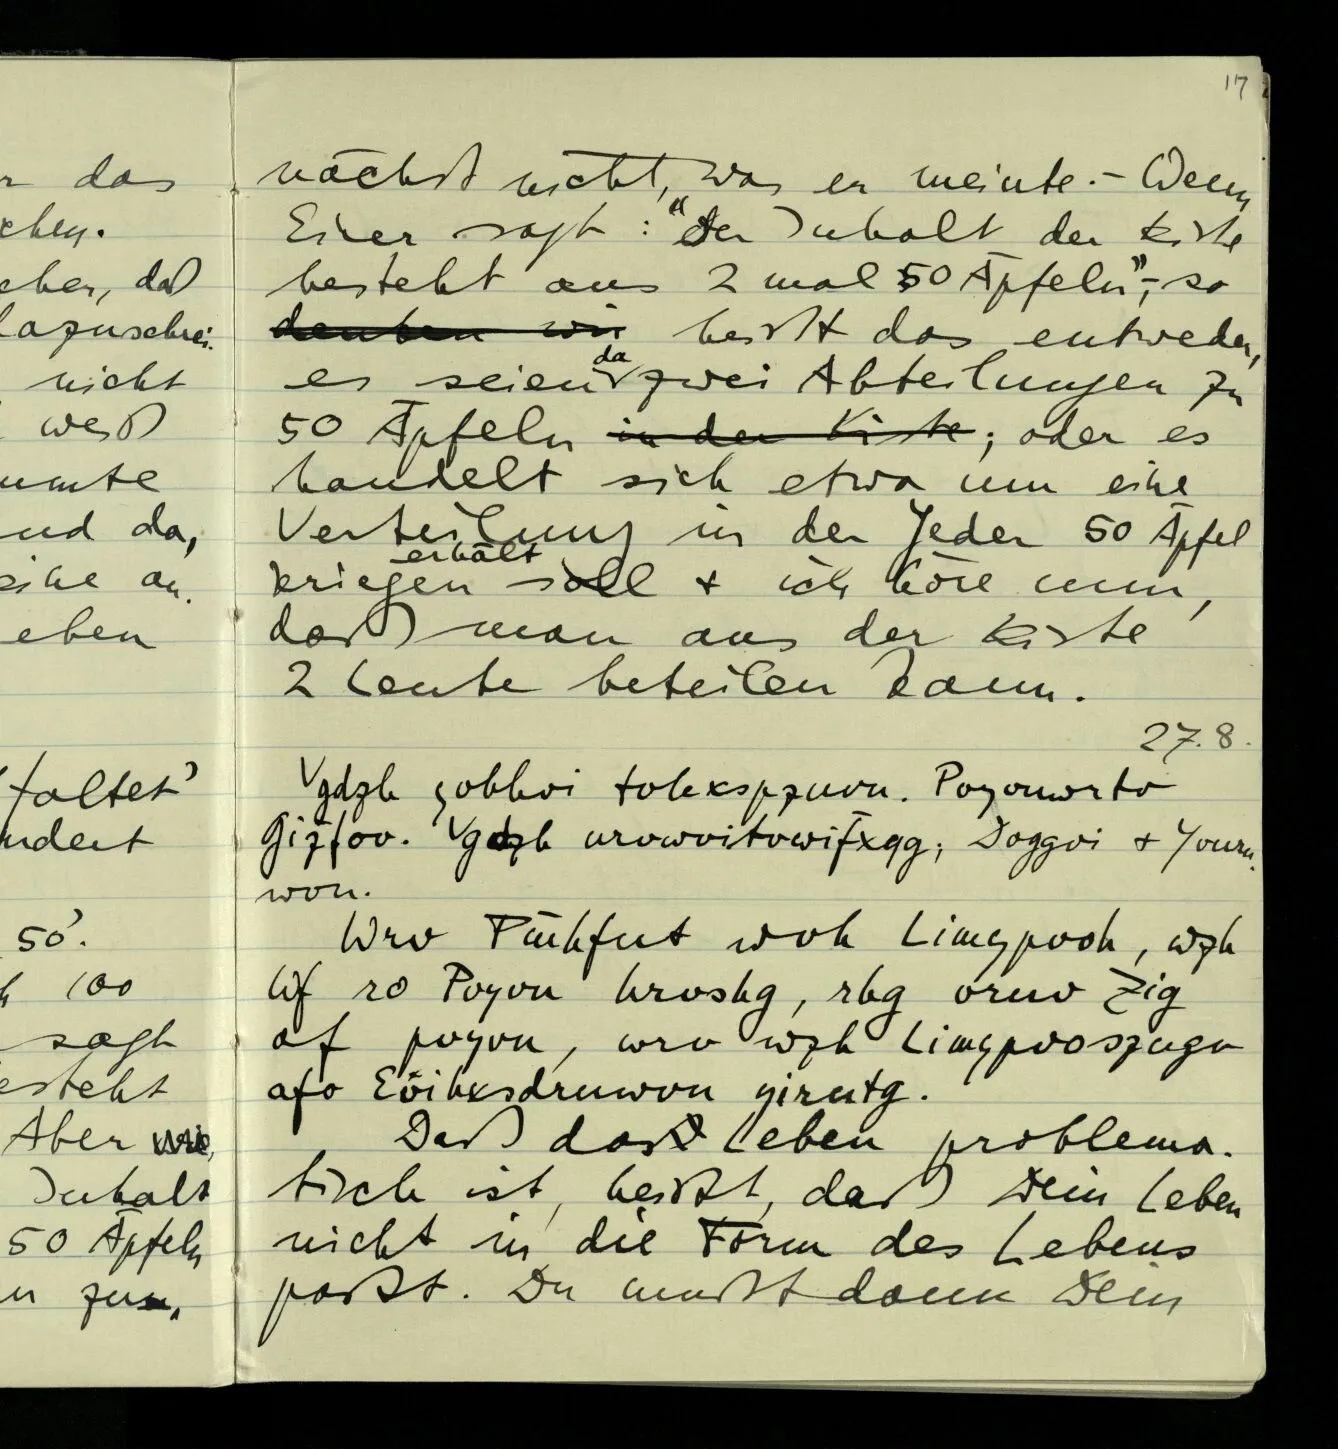 r das
chen.
cher, daß
dazuschrei-
nicht
weiß
nd da,
eine an-
eben
faltet'
ndert
50'.
100
sagt
esteht
Aber wie,
Inhalt
50 Äpfeln
nächst nicht, was er meinte. – Wenn
Einer sagt: "Der Inhalt der Kiste
besteht aus 2 mal 50 Äpfeln", so
denken wir heißt das entweder,
da
es seien zwei Abteilungen zu
50 Äpfeln in der Kiste; oder es
handelt sich etwa um eine
Verteilung in der Jeder 50 Äpfel
erhält
kriegen soll & ich höre nun,
daß man aus der Kiste
2 Leute beteilen kann.
27.8.
Vgdzh yvhhvi tvhxspzuvn. Pvyvnwrtv
Gizfov. Vgdzh nrvwvitvwif̈xqg; Dvggvi & Yvurn-
wvn.
Wrv Pm̈hfnt wvh Limypvoh, wzh
Wf ro Pvyvn hrvshg, rhg vrnv Zig
af pvyvn, wrv wzh Limypvoszugv
afo Evihxsdrnwvn yirntg.
Daß das Leben problema-
tisch ist, heißt, daß Dein Leben
nicht in die Form des Lebens
paßt. Du mußt dann Dein
17